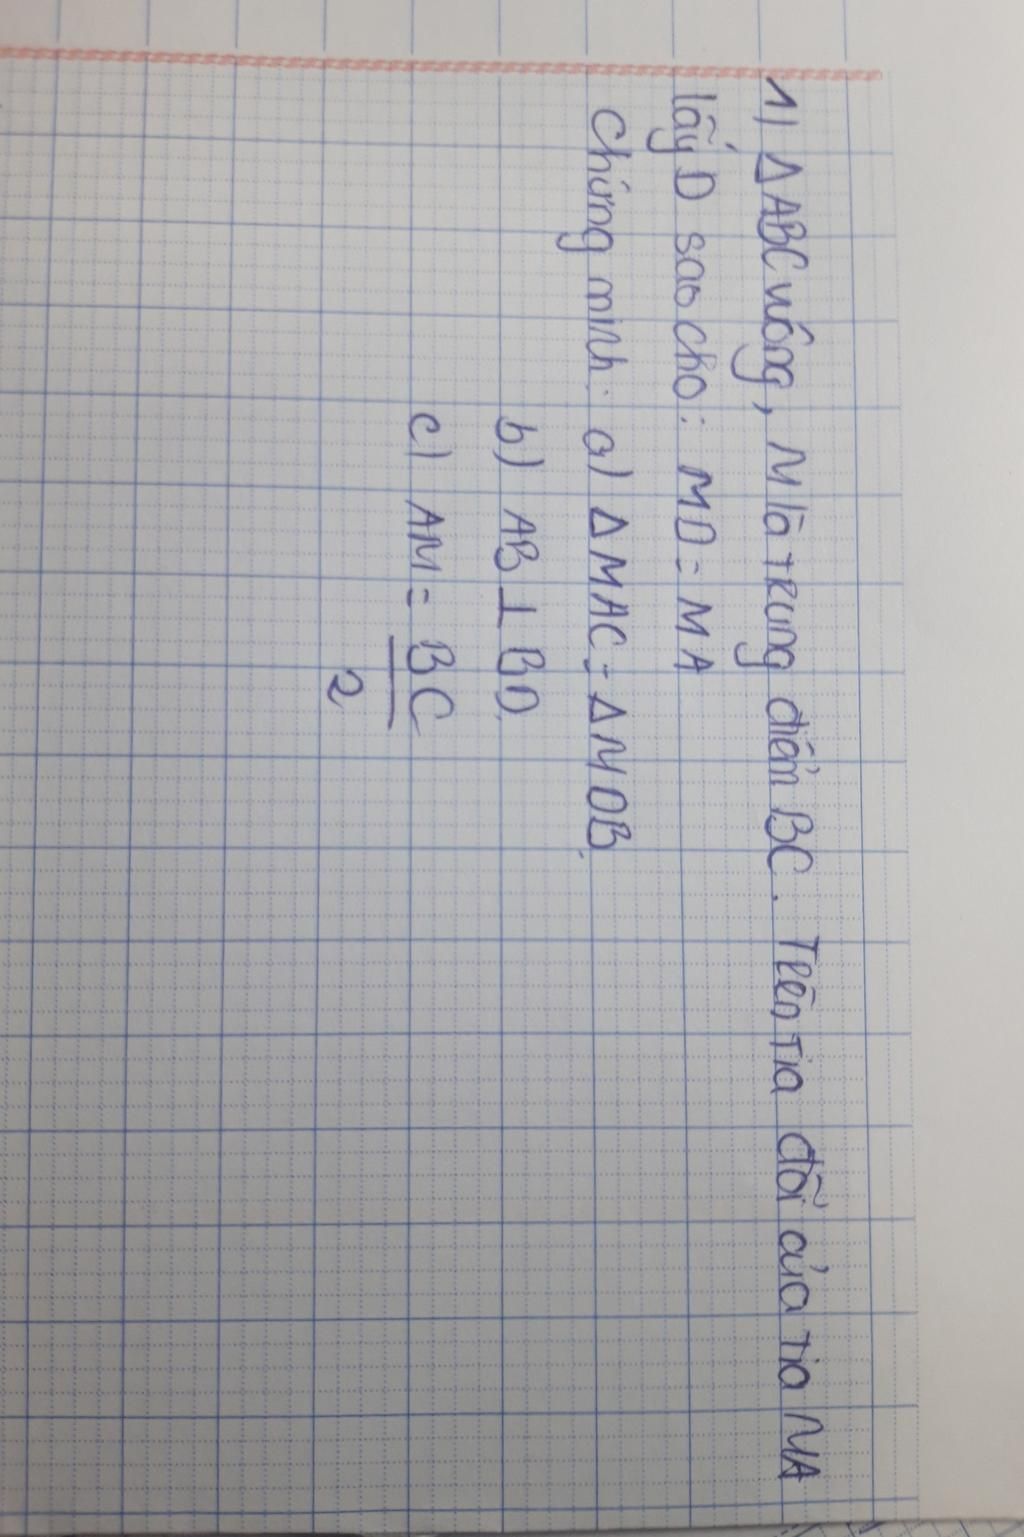 1) ΔABC vuông, M là trung điểm BC. Trên tia đối của tia MA
lấy D sao cho: MD = MA
Chứng minh: a) ΔMAC = ΔMDB.
b) AB ⊥ BD.
c) AM = BC/2